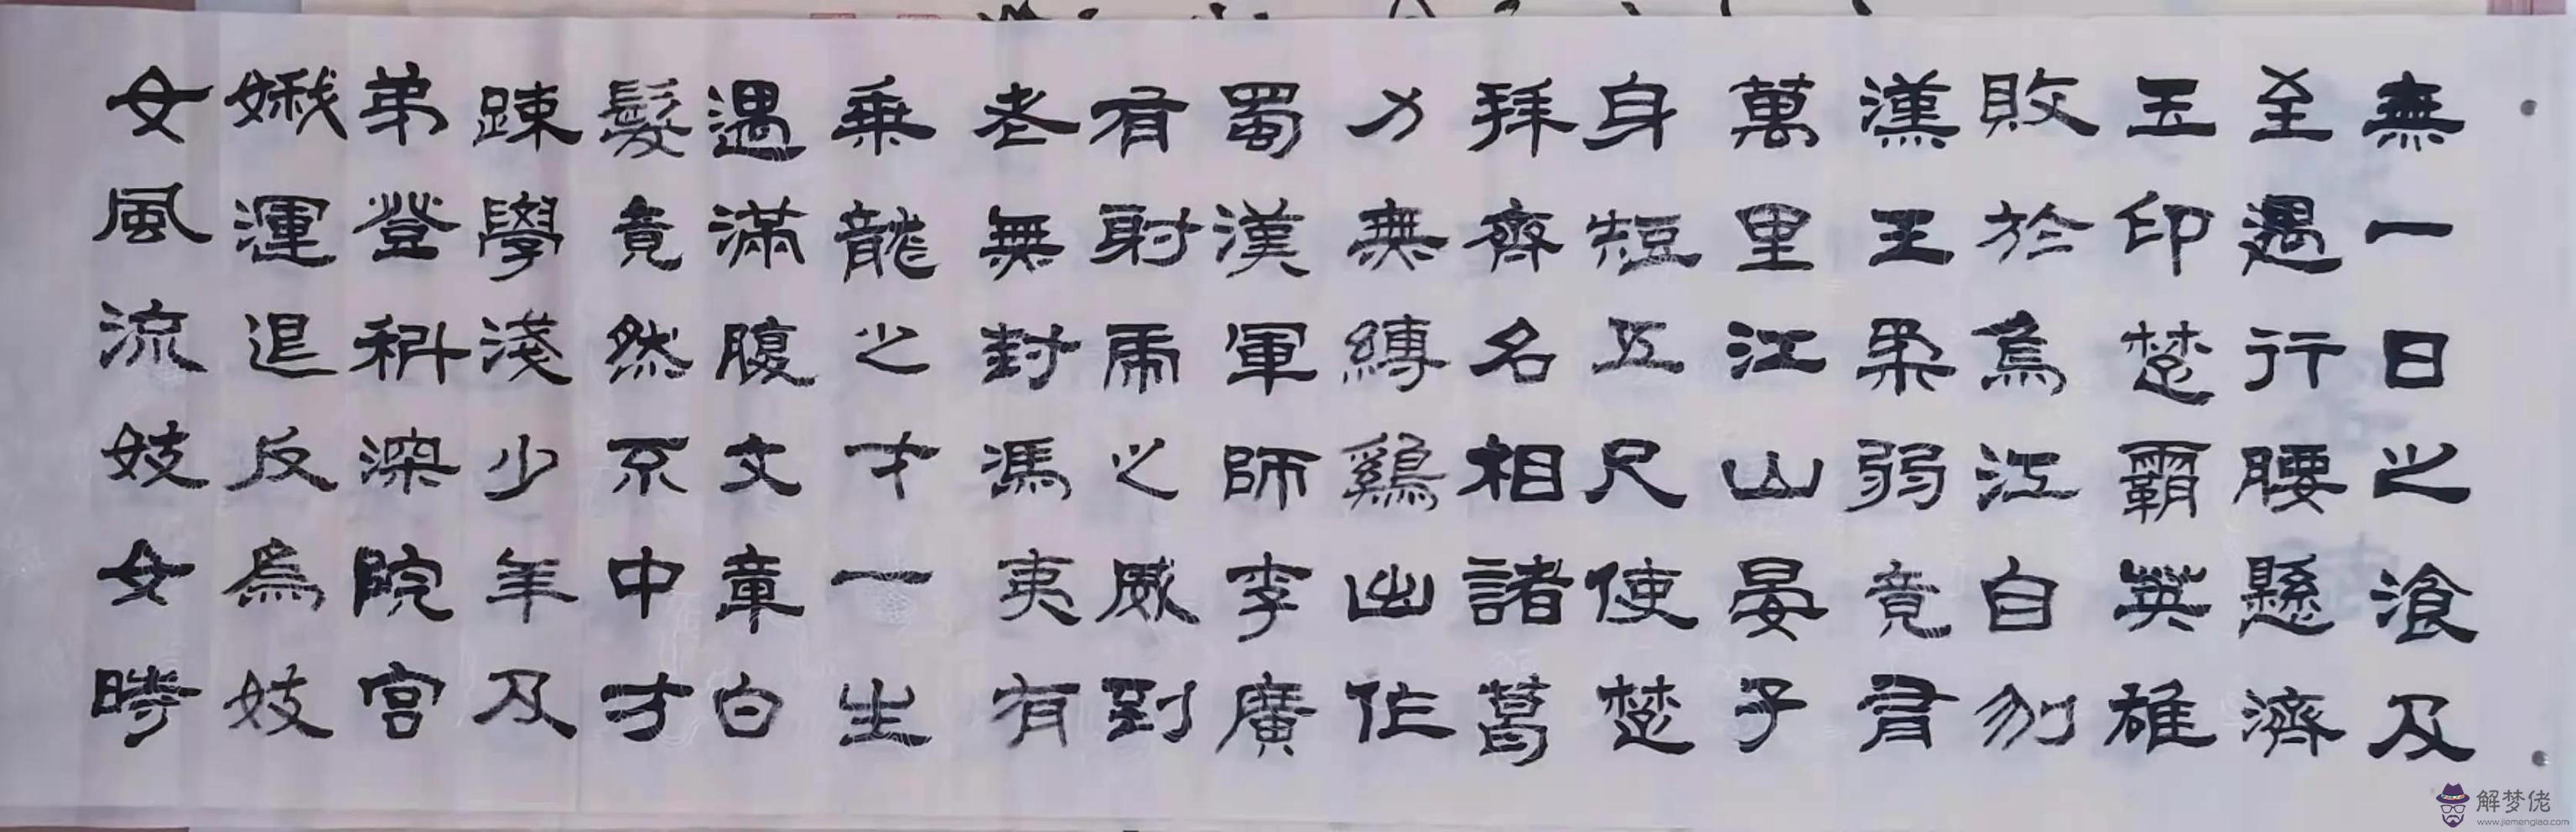 無一日之飡及
至遇行腰懸濟
玉印楚霸英雄
敗於烏江自刎
漢王柔弱竟有
萬里江山晏子
身短五尺使楚
拜齊名相諸葛
力無縛鷄出作
蜀漢軍師李廣
有射虎之威到
老無封馮夷有
乘龍之才一生
遇滿腹文章白
髮竟然不中才
踈學淺少年及
弟登科深院宮
娥運退反為妓
女風流妓女時
解梦佬
www.jiemenglao.com